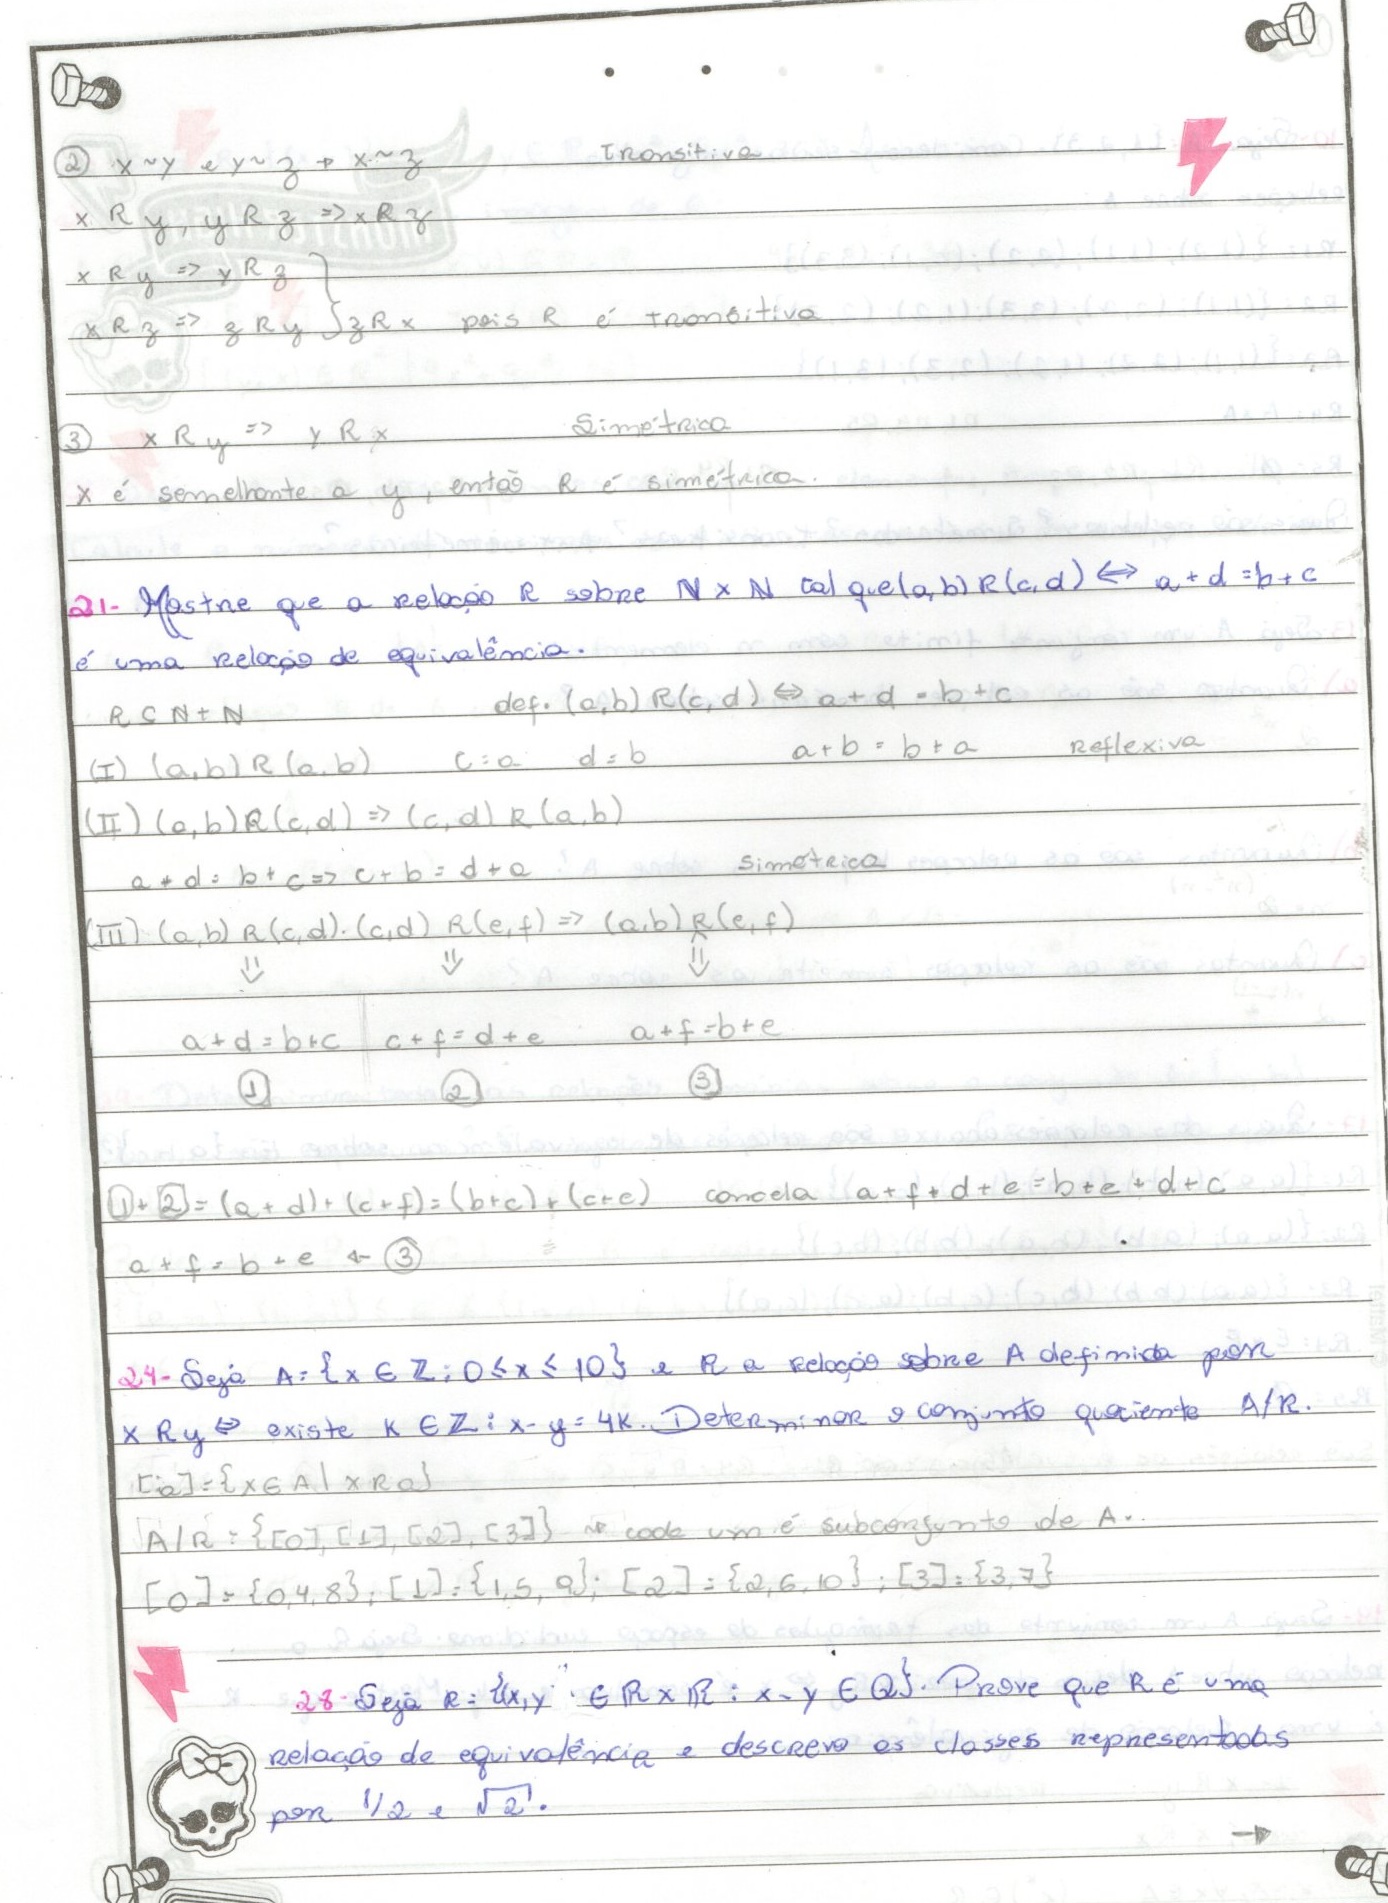 ② x ~ y e y ~ z → x ~ z Transitiva
x R y, y R z => x R z
x R y => y R z
x R z => z R y } z R x pois R é transitiva
③ x R y => y R x Simétrica
x é semelhante a y, então R é simétrica.
21- Mostre que a relação R sobre N x N tal que (a,b) R (c,d) ⇔ a + d = b + c
é uma relação de equivalência.
R ⊂ N + N def. (a,b) R (c,d) ⇔ a + d = b + c
(I) (a,b) R (a,b) c = a d = b a + b = b + a Reflexiva
(II) (a,b) R (c,d) => (c,d) R (a,b)
a + d = b + c => c + b = d + a simétrica
(III) (a,b) R (c,d) . (c,d) R (e,f) => (a,b) R (e,f)
⇓ ⇓ ⇓
a + d = b + c | c + f = d + e a + f = b + e
① ② ③
1 + 2 = (a + d) + (c + f) = (b + c) + (c + e) cancela a + f + d + e = b + e + d + c
a + f = b + e ← ③
24- Seja A = {x ∈ Z : 0 ≤ x ≤ 10} e R a relação sobre A definida por
x R y ⇔ existe K ∈ Z : x - y = 4K. Determinar o conjunto quociente A/R.
[a] = {x ∈ A | x R a}
A/R = {[0], [1], [2], [3]} → cada um é subconjunto de A.
[0] = {0,4,8}; [1] = {1,5,9}; [2] = {2,6,10}; [3] = {3,7}
28- Seja R = {(x,y ∈ R x R : x - y ∈ Q}. Prove que R é uma
relação de equivalência e descreva as classes representadas
por 1/2 e √2.
→